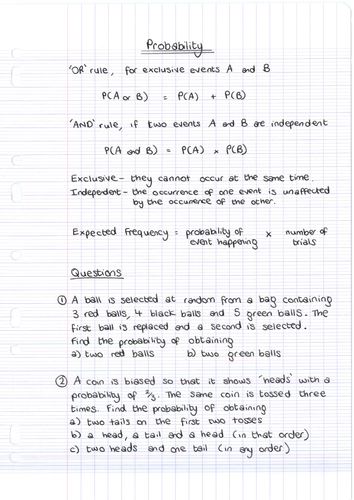 Probability
'OR' rule, for exclusive events A and B
P(A or B) = P(A) + P(B)
'AND' rule, if two events A and B are independent
P(A and B) = P(A) × P(B)
Exclusive - they cannot occur at the same time.
Independent - the occurrence of one event is unaffected
by the occurrence of the other.
Expected Frequency = probability of × number of
event happening trials
Questions
① A ball is selected at random from a bag containing
3 red balls, 4 black balls and 5 green balls. The
first ball is replaced and a second is selected.
Find the probability of obtaining
a) two red balls b) two green balls
② A coin is biased so that it shows 'heads' with a
probability of 2/3. The same coin is tossed three
times. Find the probability of obtaining
a) two tails on the first two tosses
b) a head, a tail and a head (in that order)
c) two heads and one tail (in any order)